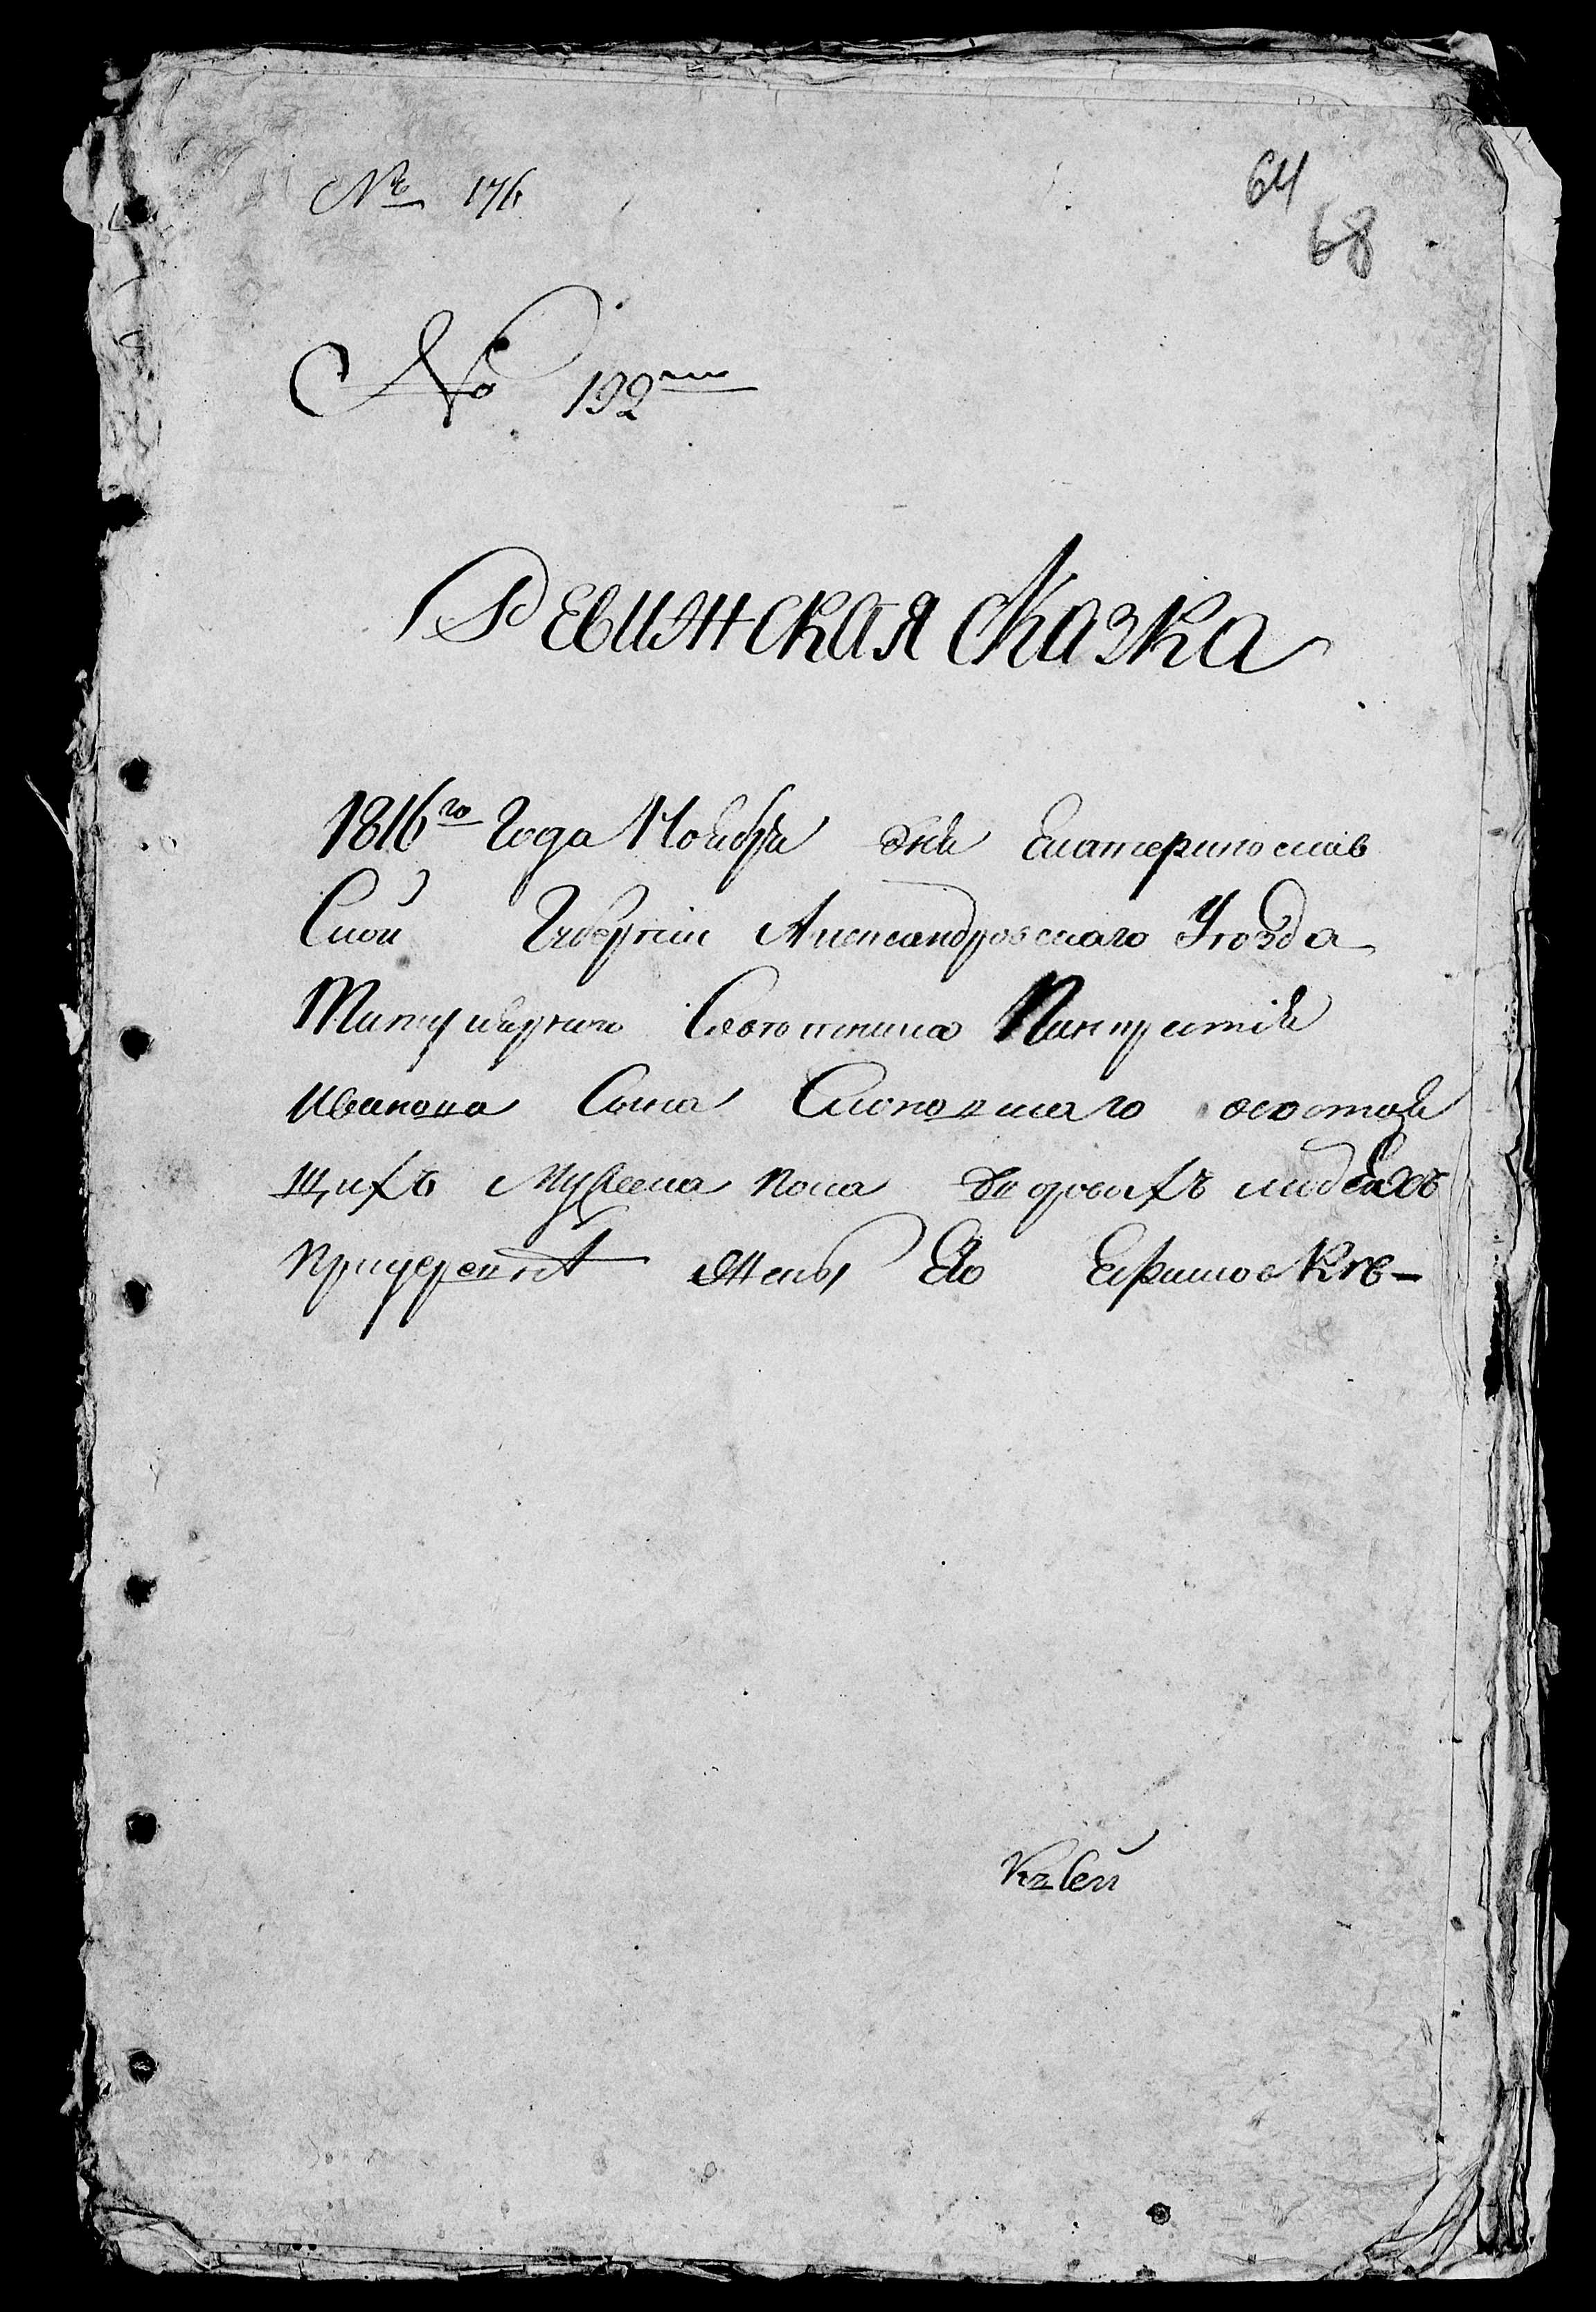 № 176
64
68
№ 192
Ревижская сказка
1816го Года Ноября дня Екатеринослав
Ской Губернии Александровского Уезда
Титулярного Советника Панкратия
Иванова Сына Слоновскаго осостоя
щихъ мужеска пола дворовыхъ людехъ
при жены Его Ефимовке
Къ Сей